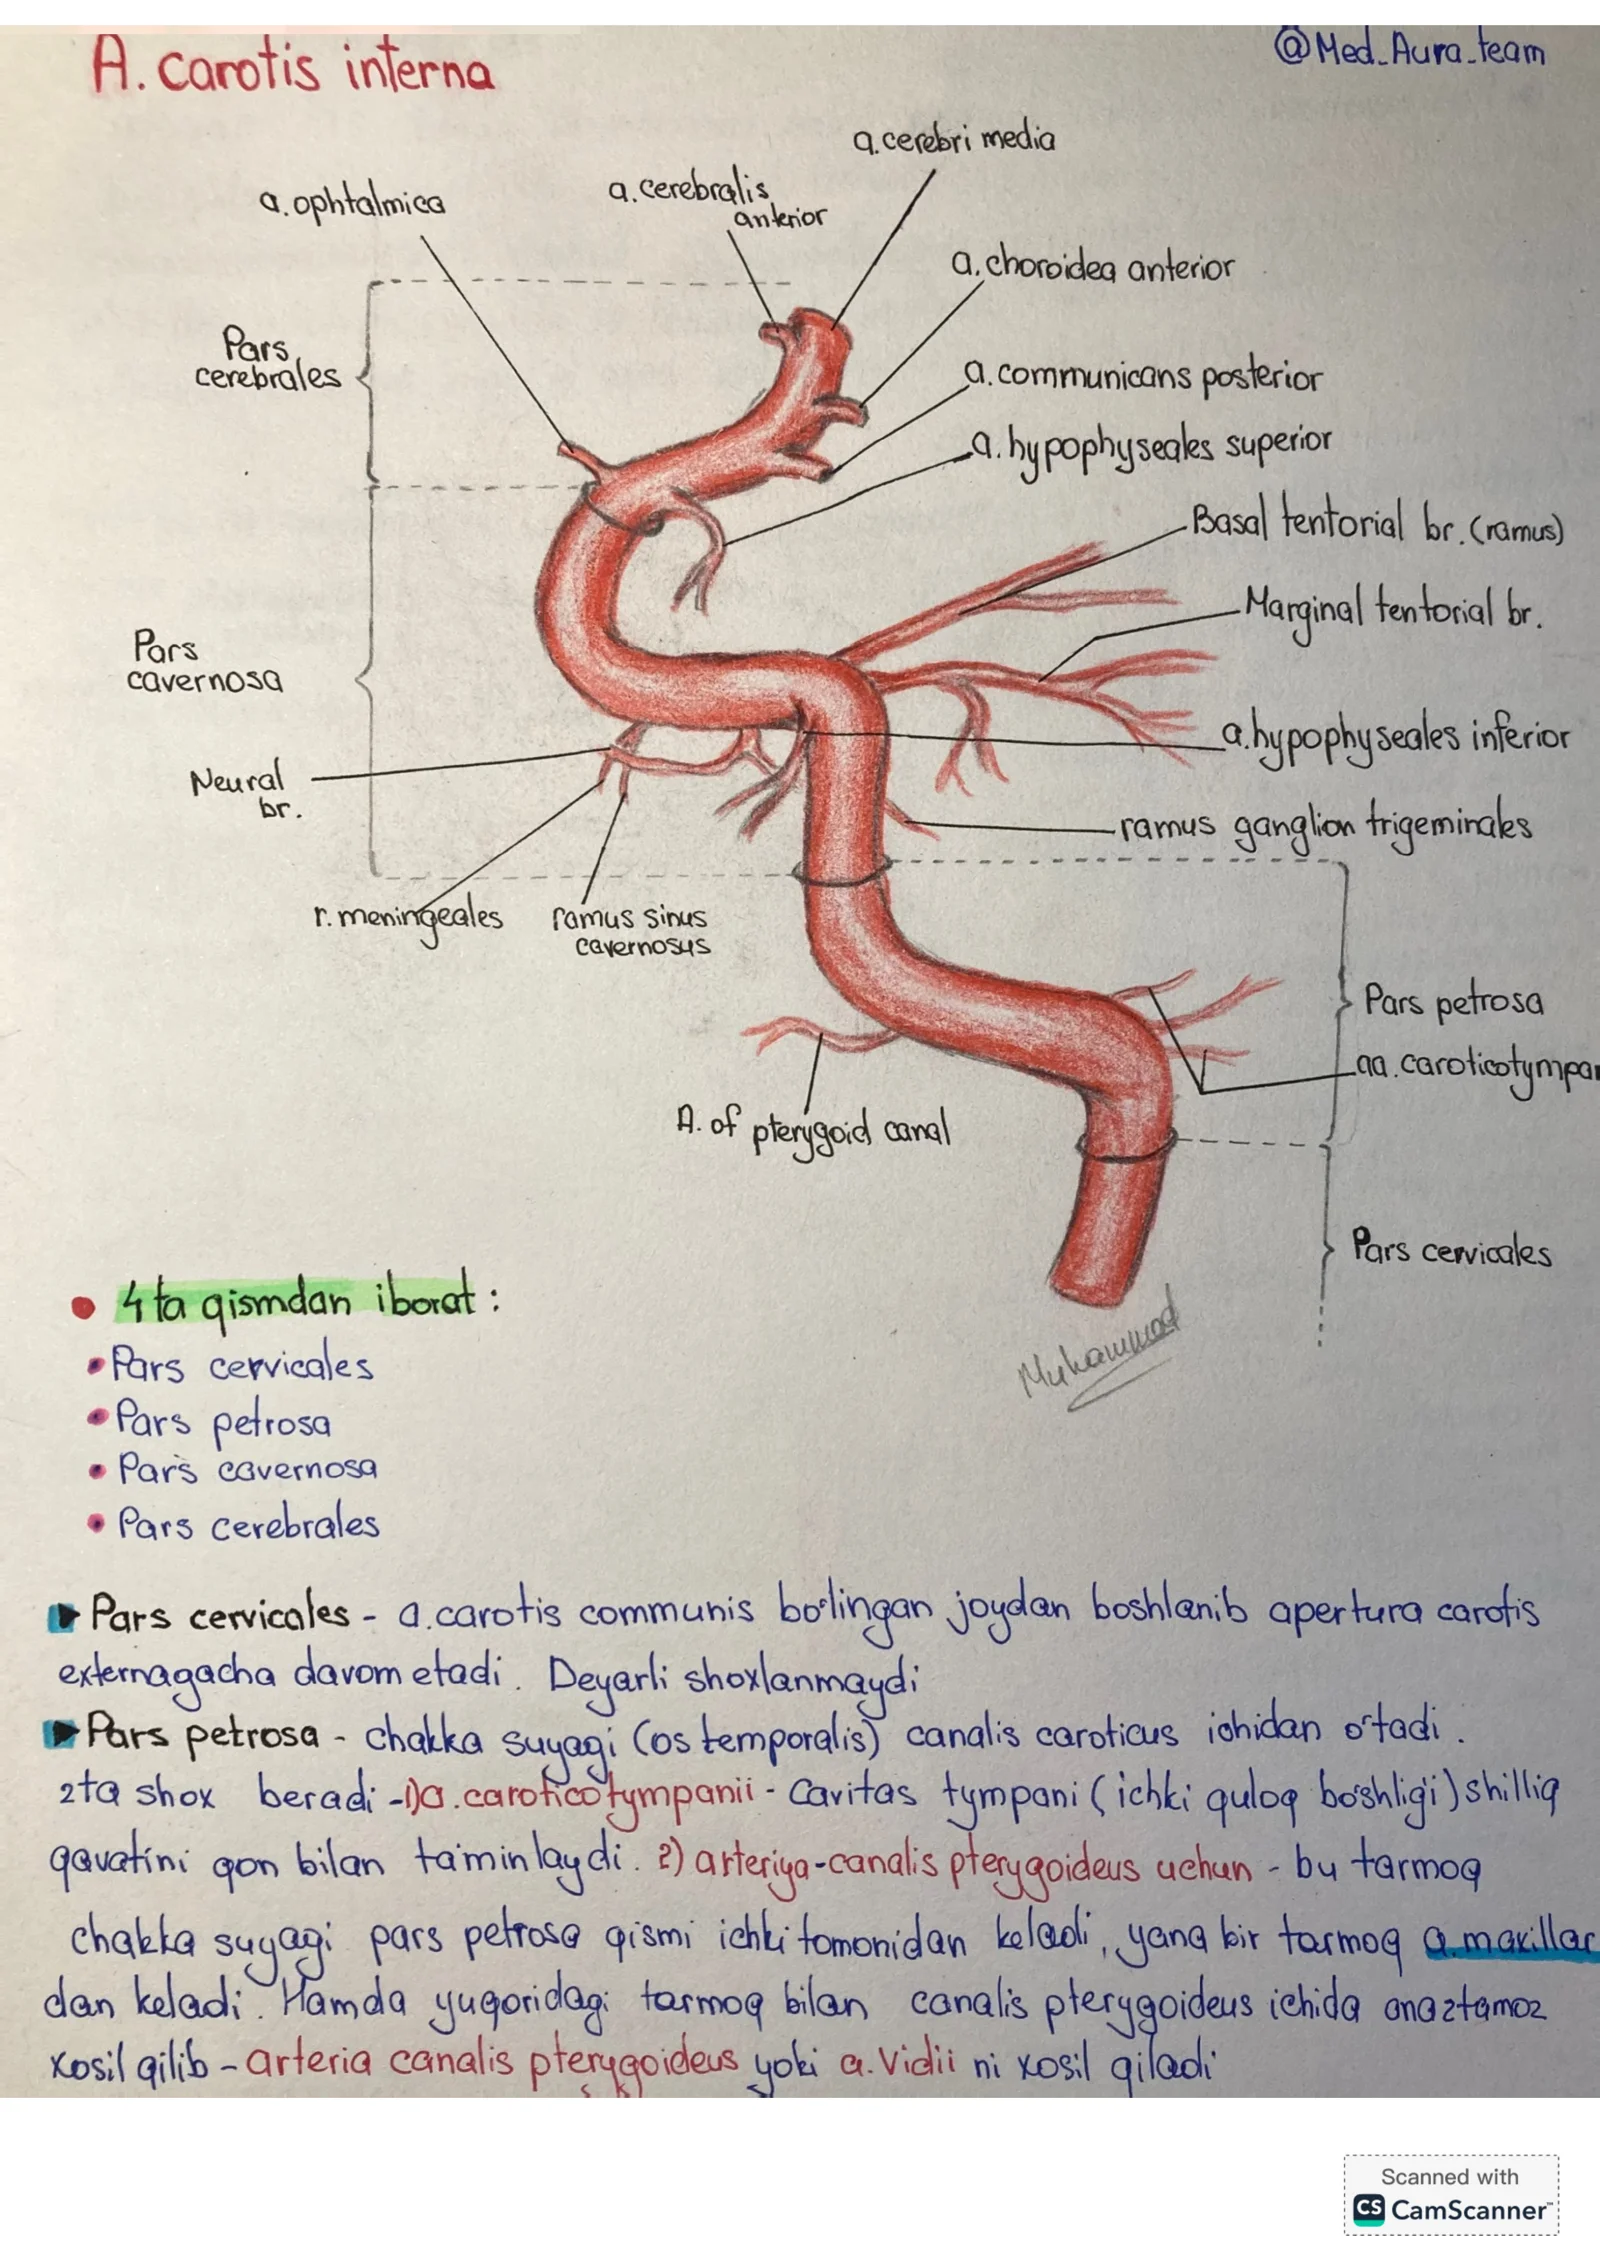 A. carotis interna
@Med_Aura_team
a. cerebri media
a. cerebralis
anterior
a. ophtalmica
a. choroidea anterior
Pars
cerebrales
a. communicans posterior
a. hypophyseales superior
Basal tentorial br. (ramus)
Marginal tentorial br.
Pars
cavernosa
a. hypophyseales inferior
Neural
br.
ramus ganglion trigeminales
r. meningeales
ramus sinus
cavernosus
Pars petrosa
aa. caroticotympa
A. of pterygoid canal
Pars cervicales
Muhammad
• 4 ta qismdan iborat :
• Pars cervicales
• Pars petrosa
• Pars cavernosa
• Pars cerebrales
▶ Pars cervicales - a. carotis communis bo'lingan joydan boshlanib apertura carotis
externagacha davom etadi. Deyarli shoxlanmaydi
▶ Pars petrosa - chakka suyagi (os temporalis) canalis caroticus ichidan o'tadi.
2ta shox beradi - 1) a. caroticotympanii - Cavitas tympani (ichki quloq bo'shlig'i) shilliq
qavatini qon bilan ta'minlaydi. 2) arteriya-canalis pterygoideus uchun - bu tarmoq
chakka suyagi pars petrosa qismi ichki tomonidan keladi, yana bir tarmoq a. maxillar
dan keladi. Hamda yuqoridagi tarmoq bilan canalis pterygoideus ichida anaztamoz
xosil qilib - arteria canalis pterygoideus yoki a. Vidii ni xosil qiladi
Scanned with
CS CamScanner™